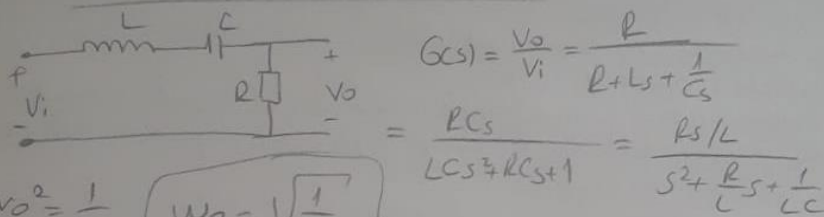 L C
+ Vi - R + Vo -
G(s) = Vo/Vi = R/(R+Ls+1/Cs)
= RCs/(LCs²+RCs+1) = Rs/L/(s²+R/L s+1/LC)
wo² = 1 wo = √1